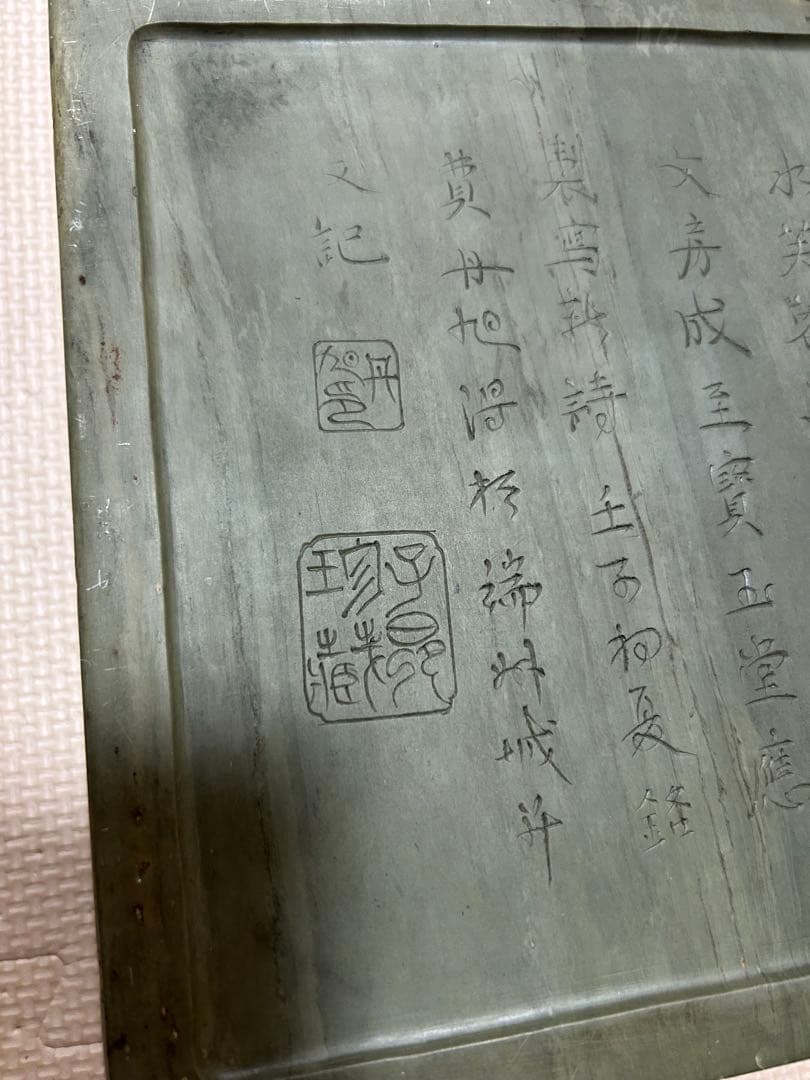 水笑
文房成至寶玉堂應
製寫新詩壬子初夏
費丹旭得於端州城并
文記
丹
子
珍藏